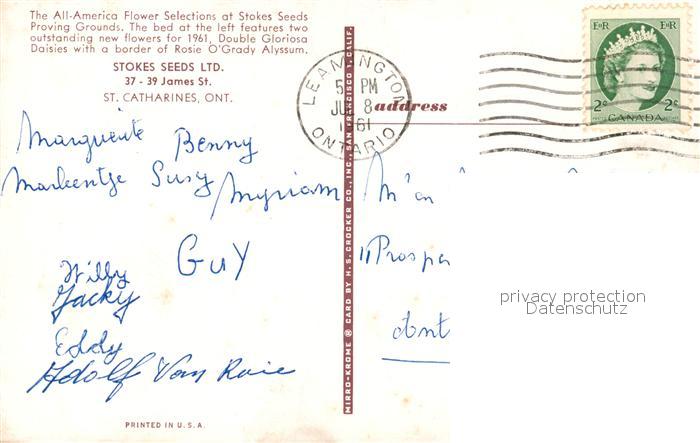 The All-America Flower Selections at Stokes Seeds
Proving Grounds. The bed at the left features two
outstanding new flowers for 1961, Double Gloriosa
Daisies with a border of Rosie O'Grady Alyssum.
STOKES SEEDS LTD.
37 - 39 James St.
ST. CATHARINES, ONT.
Marguerite Benny
Susy Myriam
Guy
Willy
Jacky
Eddy
Adolf Van
PRINTED IN U. S. A.
MIRRO-KROME ® CARD BY H. S. CROCKER CO., INC., SAN FRANCISCO 1, CALIF.
LEAMINGTON
5 PM
8
61
ONTARIO
address
EIIR EIIR
2c CANADA 2c
M'en
"Prospe
privacy protection
Datenschutz